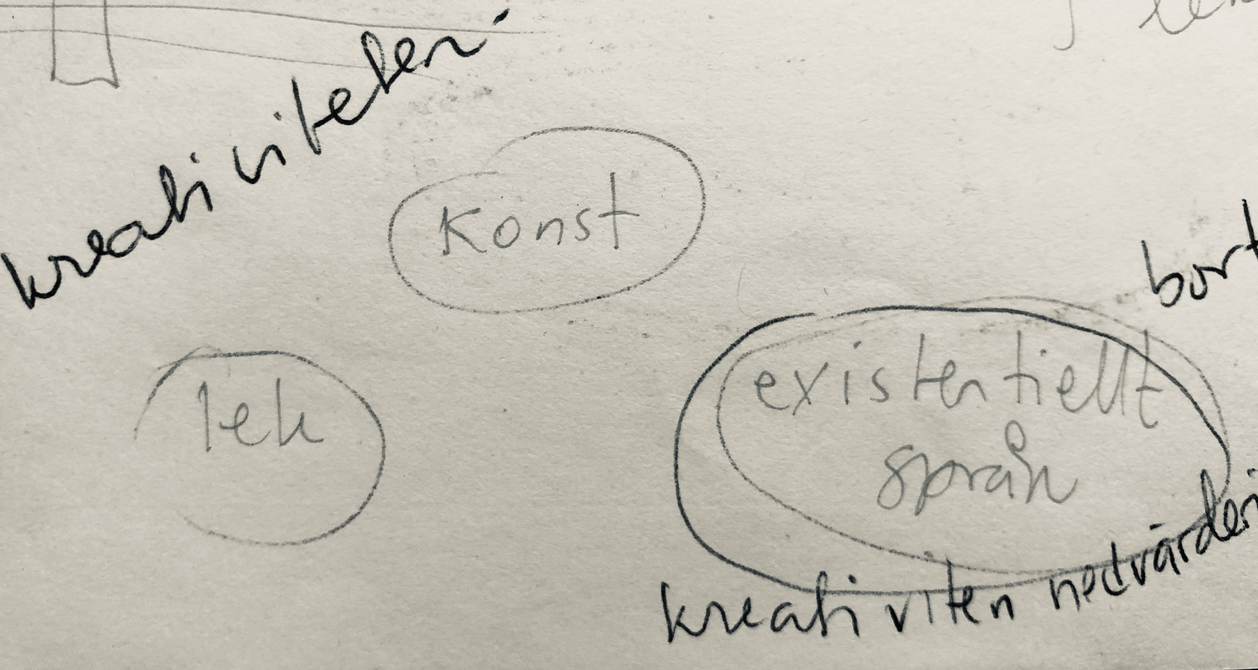 kreativiteten
Konst
bort
lek
existentiellt
språk
kreativiten nedvärderi